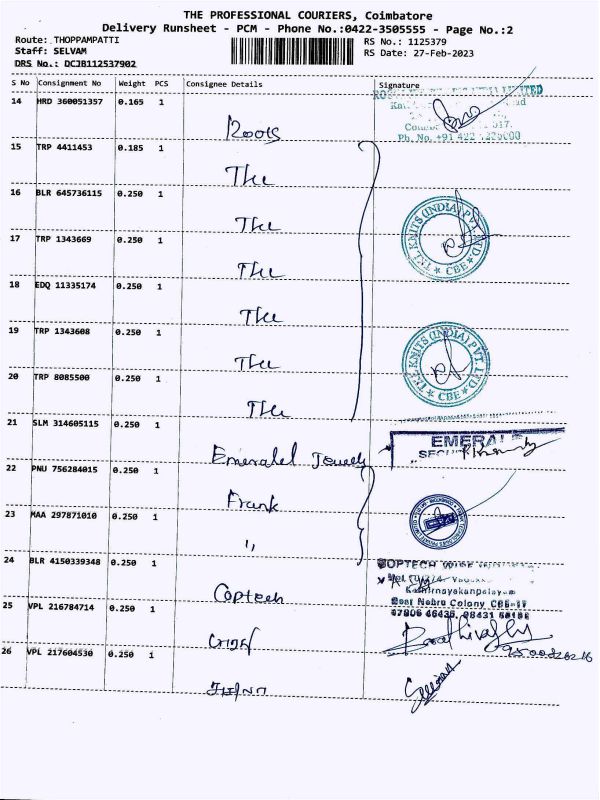 THE PROFESSIONAL COURIERS, Coimbatore
Delivery Runsheet - PCM - Phone No.:0422-3505555 - Page No.:2
Route: THOPPAMPATTI
RS No.: 1125379
Staff: SELVAM
RS Date: 27-Feb-2023
DRS No.: DCJB112537902
S No Consignment No Weight PCS Consignee Details Signature
14 HRD 360051357 0.165 1 Roots
LIMITED
Ph. No. +91 422
15 TRP 4411453 0.185 1 The
16 BLR 645736115 0.250 1 The
T.T.L KNITS (INDIA) PVT. LTD ★ CBE ★
17 TRP 1343669 0.250 1 The
18 EDQ 11335174 0.250 1 The
19 TRP 1343608 0.250 1 The
T.T.L KNITS (INDIA) PVT. LTD ★ CBE ★
20 TRP 8085500 0.250 1 The
21 SLM 314605115 0.250 1 Emerald
EMERAL
SECU
22 PNU 756284015 0.250 1 Frank
23 MAA 297871010 0.250 1 "
24 BLR 4150339348 0.250 1 Coptech
COPTECH WIRE
Kathirnayakanpalayam
Near Nehru Colony CBE-17
25 VPL 216784714 0.250 1
26 VPL 217604530 0.250 1